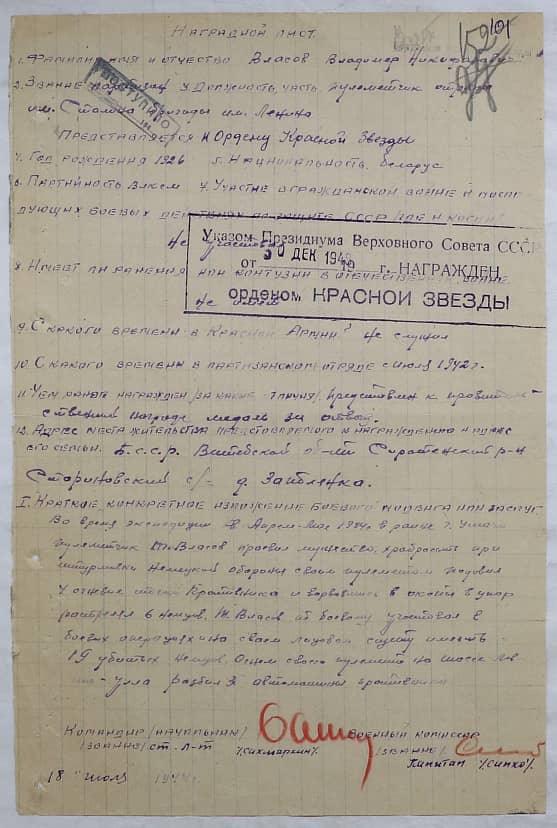 152 101
НАГРАДНОЙ ЛИСТ
1. ФАМИЛИЯ ИМЯ И ОТЧЕСТВО Власов Владимир
2. ЗВАНИЕ партизан 3. ДОЛЖНОСТЬ, ЧАСТЬ пулеметчик отряда
им. Сталина бригады им. Ленина
ПОСТУПИЛО
ПРЕДСТАВЛЯЕТСЯ К Ордену Красной Звезды
4. ГОД РОЖДЕНИЯ 1926 5. НАЦИОНАЛЬНОСТЬ беларус
6. ПАРТИЙНОСТЬ ВЛКСМ 7. УЧАСТИЕ В ГРАЖДАНСКОЙ ВОЙНЕ И ПОСЛЕ-
ДУЮЩИХ БОЕВЫХ ДЕЙСТВИЯХ ПО ЗАЩИТЕ СССР /ГДЕ И КОГДА/
Не участвовал
Указом Президиума Верховного Совета СССР
от 30 ДЕК 1948 г. НАГРАЖДЕН
орденом КРАСНОЙ ЗВЕЗДЫ
8. ИМЕЕТ ЛИ РАНЕНИЯ ИЛИ КОНТУЗИИ В ОТЕЧЕСТВЕННОЙ ВОЙНЕ
Не имеет
9. С КАКОГО ВРЕМЕНИ В КРАСНОЙ АРМИИ Не служил
10. С КАКОГО ВРЕМЕНИ В ПАРТИЗАНСКОМ ОТРЯДЕ с июля 1942 г.
11. ЧЕМ РАНЕЕ НАГРАЖДЕН /ЗА КАКИЕ ОТЛИЧИЯ/. Представлен к правитель-
ственной награде медаль за отвагу.
12. АДРЕС МЕСТА ЖИТЕЛЬСТВА ПРЕДСТАВЛЯЕМОГО К НАГРАЖДЕНИЮ И АДРЕС
ЕГО СЕМЬИ. Б.С.С.Р. Витебской обл. Сиротенский р-н
Стариновский с/с д.
I. КРАТКОЕ КОНКРЕТНОЕ ИЗЛОЖЕНИЕ БОЕВОГО ПОДВИГА ИЛИ ЗАСЛУГ
Во время экспедиции в Апреле-Мае 1944 в районе г. Ушачи
пулеметчик т. Власов проявил мужество, храбрость при
штурмовке немецкой обороны своим пулеметом подавил
4 огневые точки противника и ворвавшись в окопы в упор
расстрелял 6 немцев. Т. Власов участвовал в
боевых операциях и на своем лицевом счету имеет
19 убитых немцев. Огнем своего пулемета на шоссе
Улла разбил 3 автомашины противника
КОМАНДИР /НАЧАЛЬНИК/ ВОЕННЫЙ КОМИССАР
/ЗВАНИЕ/ СТ. Л-Т /Сахмаркин/. /ЗВАНИЕ/
Капитан /Сипко/.
18 июля 1944 г.